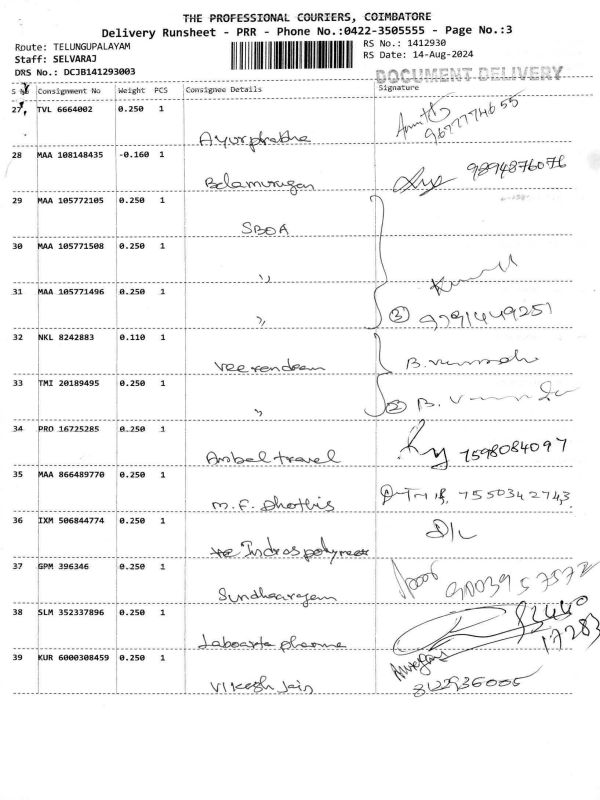 THE PROFESSIONAL COURIERS, COIMBATORE
Delivery Runsheet - PRR - Phone No.:0422-3505555 - Page No.:3
Route: TELUNGUPALAYAM
RS No.: 1412930
Staff: SELVARAJ
RS Date: 14-Aug-2024
DRS No.: DCJB141293003
DOCUMENT DELIVERY
Consignment No Weight PCS Consignee Details Signature
27 TVL 6664002 0.250 1
28 MAA 108148435 -0.160 1
Balamurugan 9894876076
29 MAA 105772105 0.250 1
SBOA
30 MAA 105771508 0.250 1
"
31 MAA 105771496 0.250 1
" 3 9791449251
32 NKL 8242883 0.110 1
33 TMI 20189495 0.250 1
" 2
34 PRO 16725285 0.250 1
travel 7598084097
35 MAA 866489770 0.250 1
M.F. Dhothis 7550342743
36 IXM 506844774 0.250 1
D/L
37 GPM 396346 0.250 1
38 SLM 352337896 0.250 1
83440
17283
39 KUR 6000308459 0.250 1
Vikesh Jain 8122936005